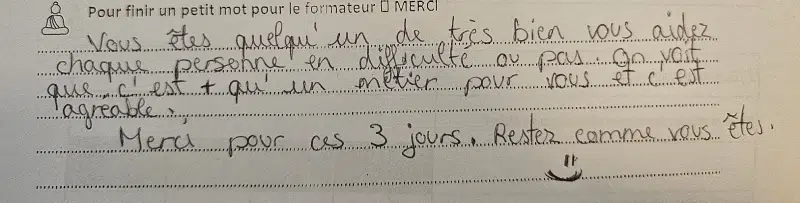 Pour finir un petit mot pour le formateur □ MERCI
Vous êtes quelqu'un de très bien vous aidez
chaque personne en difficulté ou pas. On voit
que c'est + qu'un métier pour vous et c'est
agréable.
Merci pour ces 3 jours. Restez comme vous êtes.